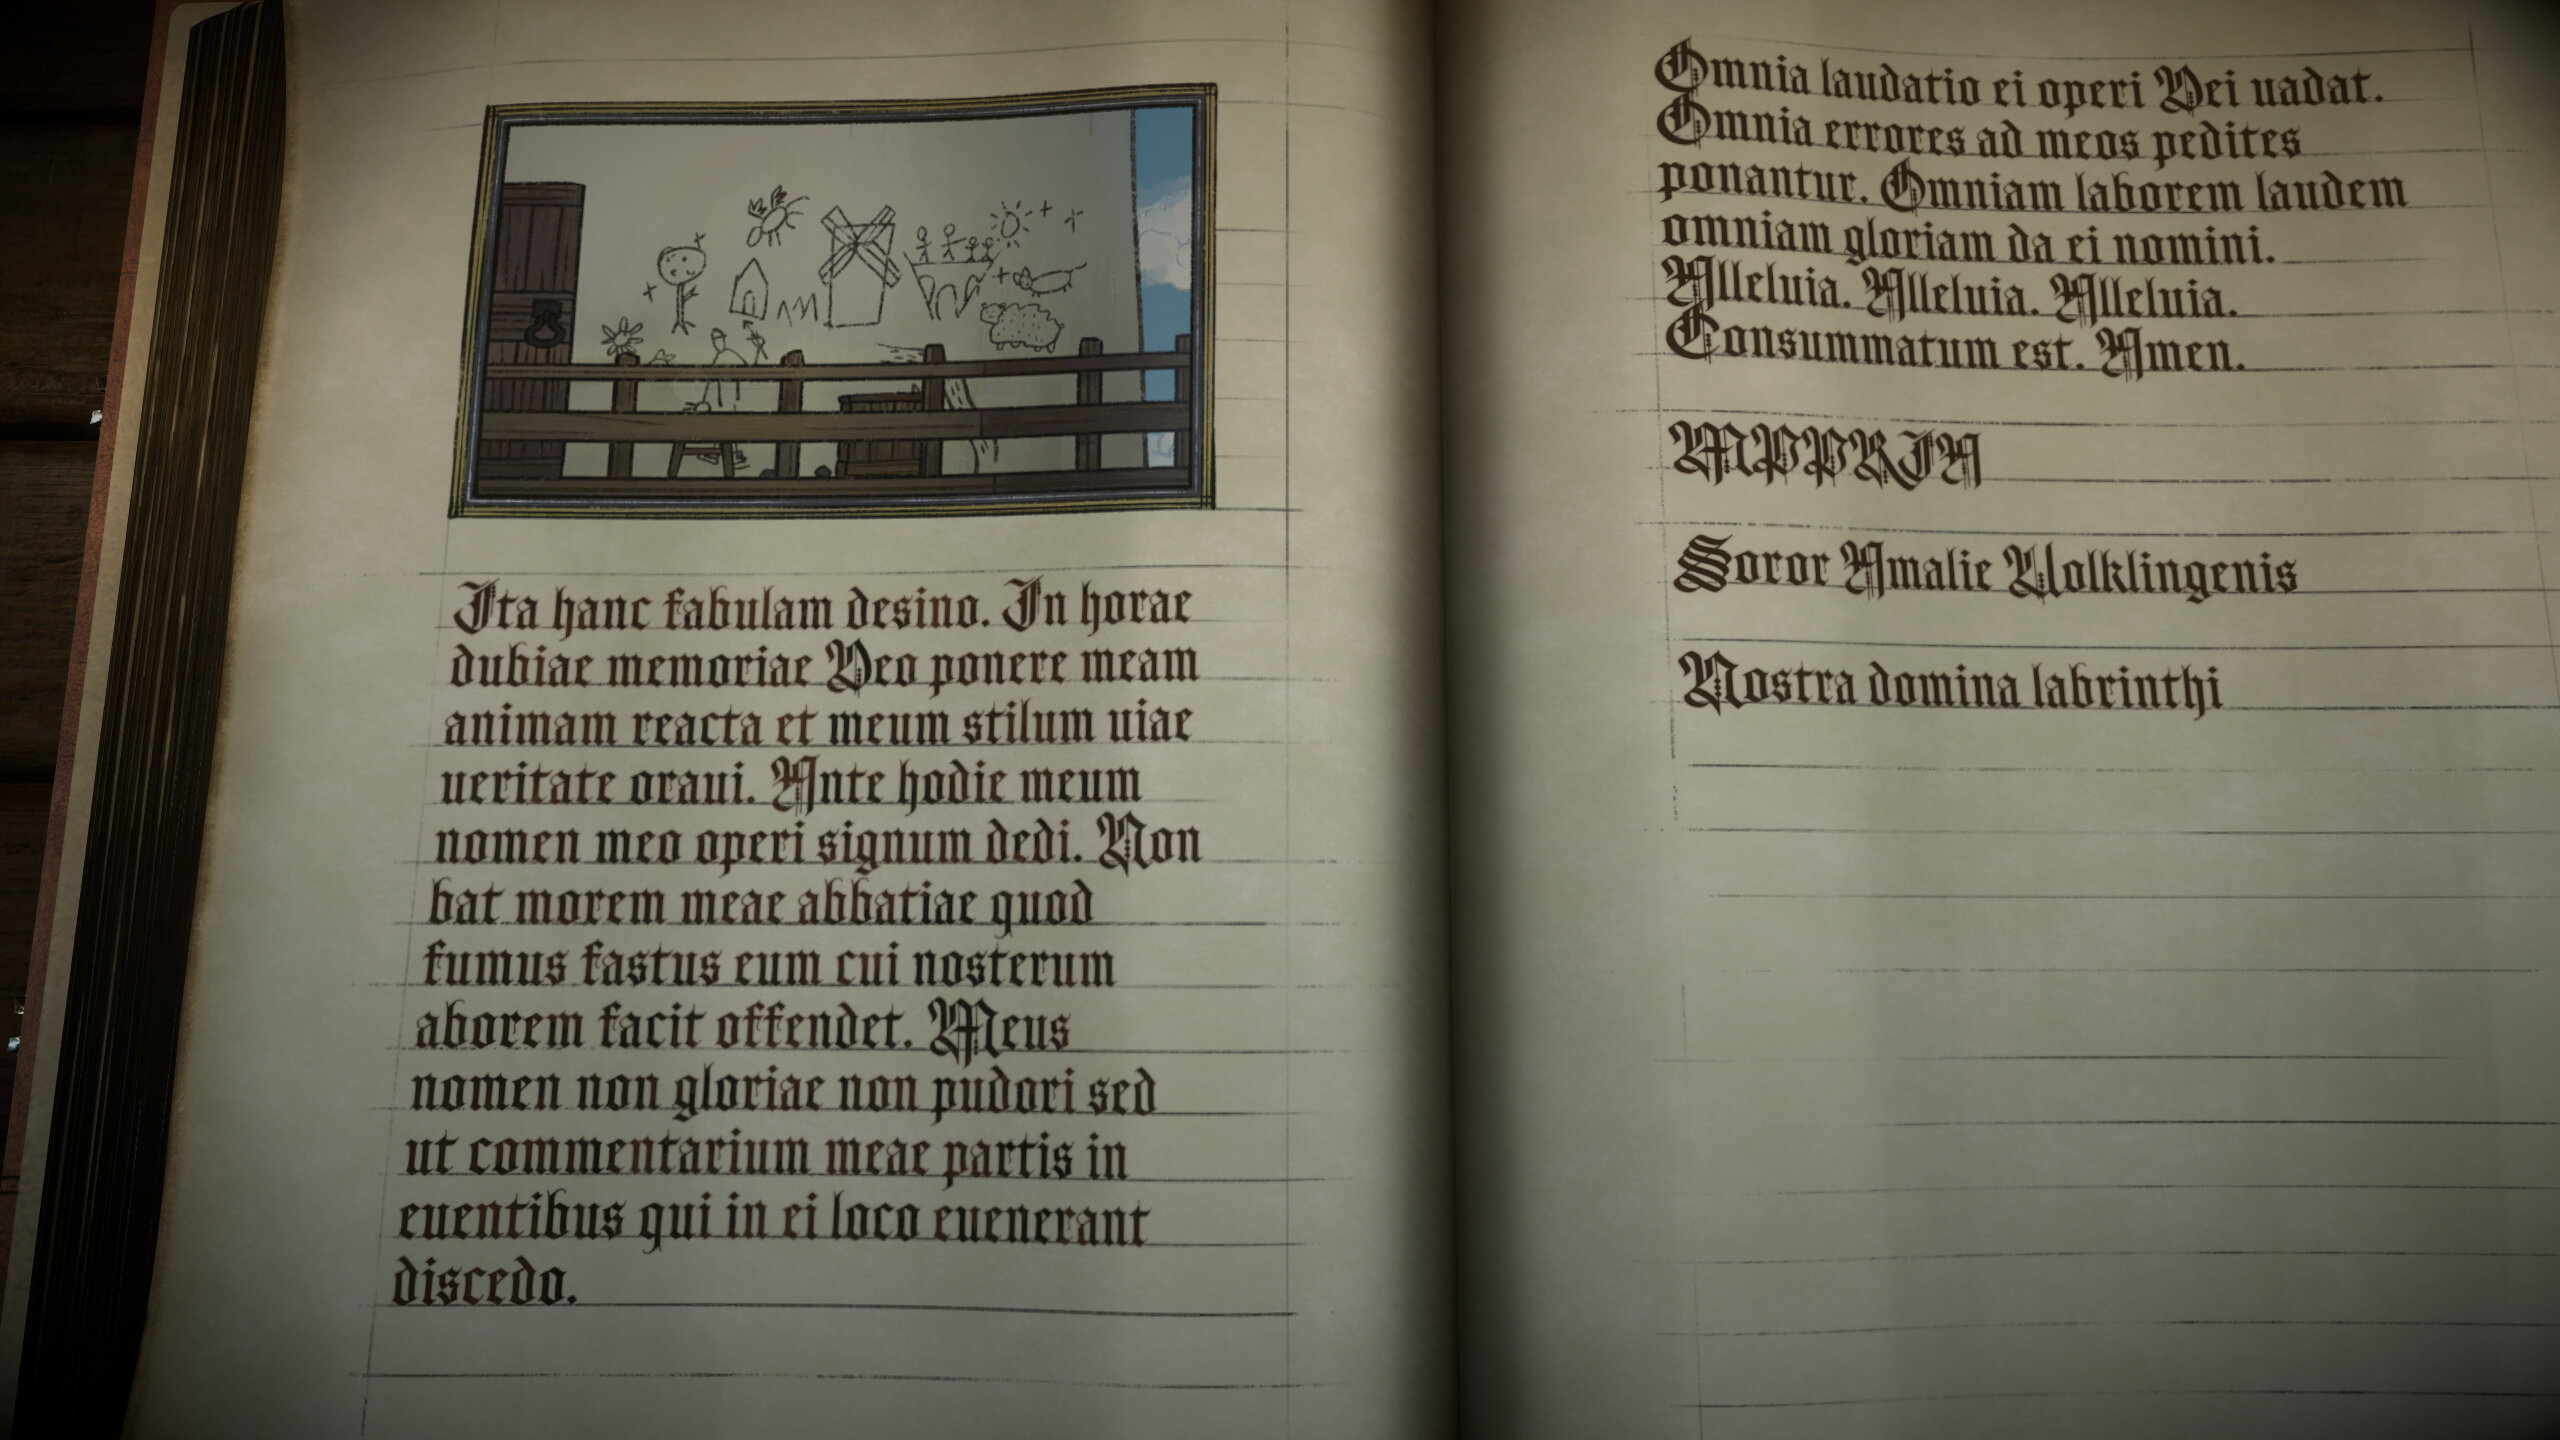 Ita hanc fabulam desino. In horae
dubiae memoriae Deo ponere meam
animam reacta et meum stilum uiae
ueritate oraui. Ante hodie meum
nomen meo operi signum dedi. Non
bat morem meae abbatiae quod
fumus fastus eum cui nosterum
aborem facit offendet. Meus
nomen non gloriae non pudori sed
ut commentarium meae partis in
euentibus qui in ei loco euenerant
discedo.
Omnia laudatio ei operi Dei uadat.
Omnia errores ad meos pedites
ponantur. Omniam laborem laudem
omniam gloriam da ei nomini.
Alleluia. Alleluia. Alleluia.
Consummatum est. Amen.
MPPRIA
Soror Amalie Uolklingenis
Nostra domina labrinthi